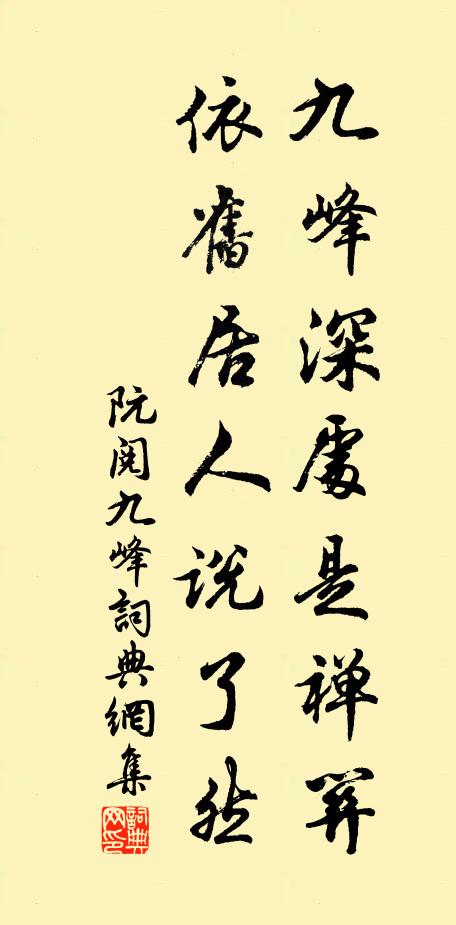 九峰深處是禪關
依舊居人說了然
阮閱九峰詞典網集
詞典
网印